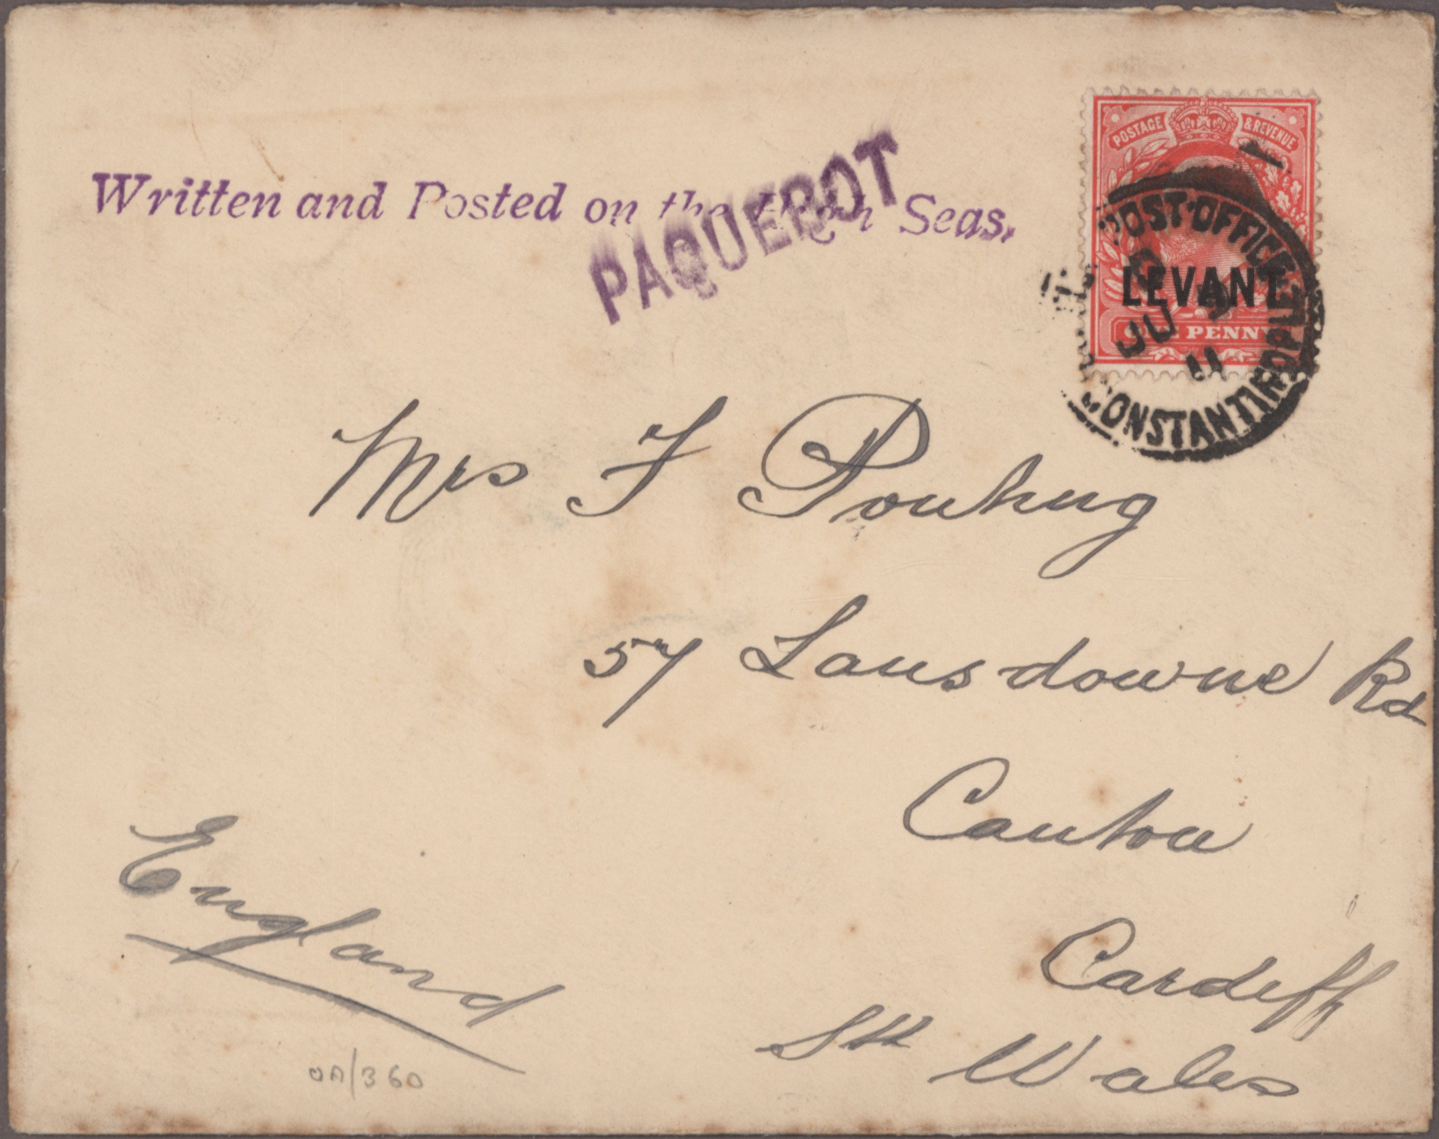 Written and Posted on the High Seas.
PAQUEBOT
POSTAGE & REVENUE
LEVANT
ONE PENNY
POST·OFFICE
CONSTANTINOPLE
JU
11
Mrs F
57 Lansdowne Rd
Canton
Cardiff
Sth Wales
England